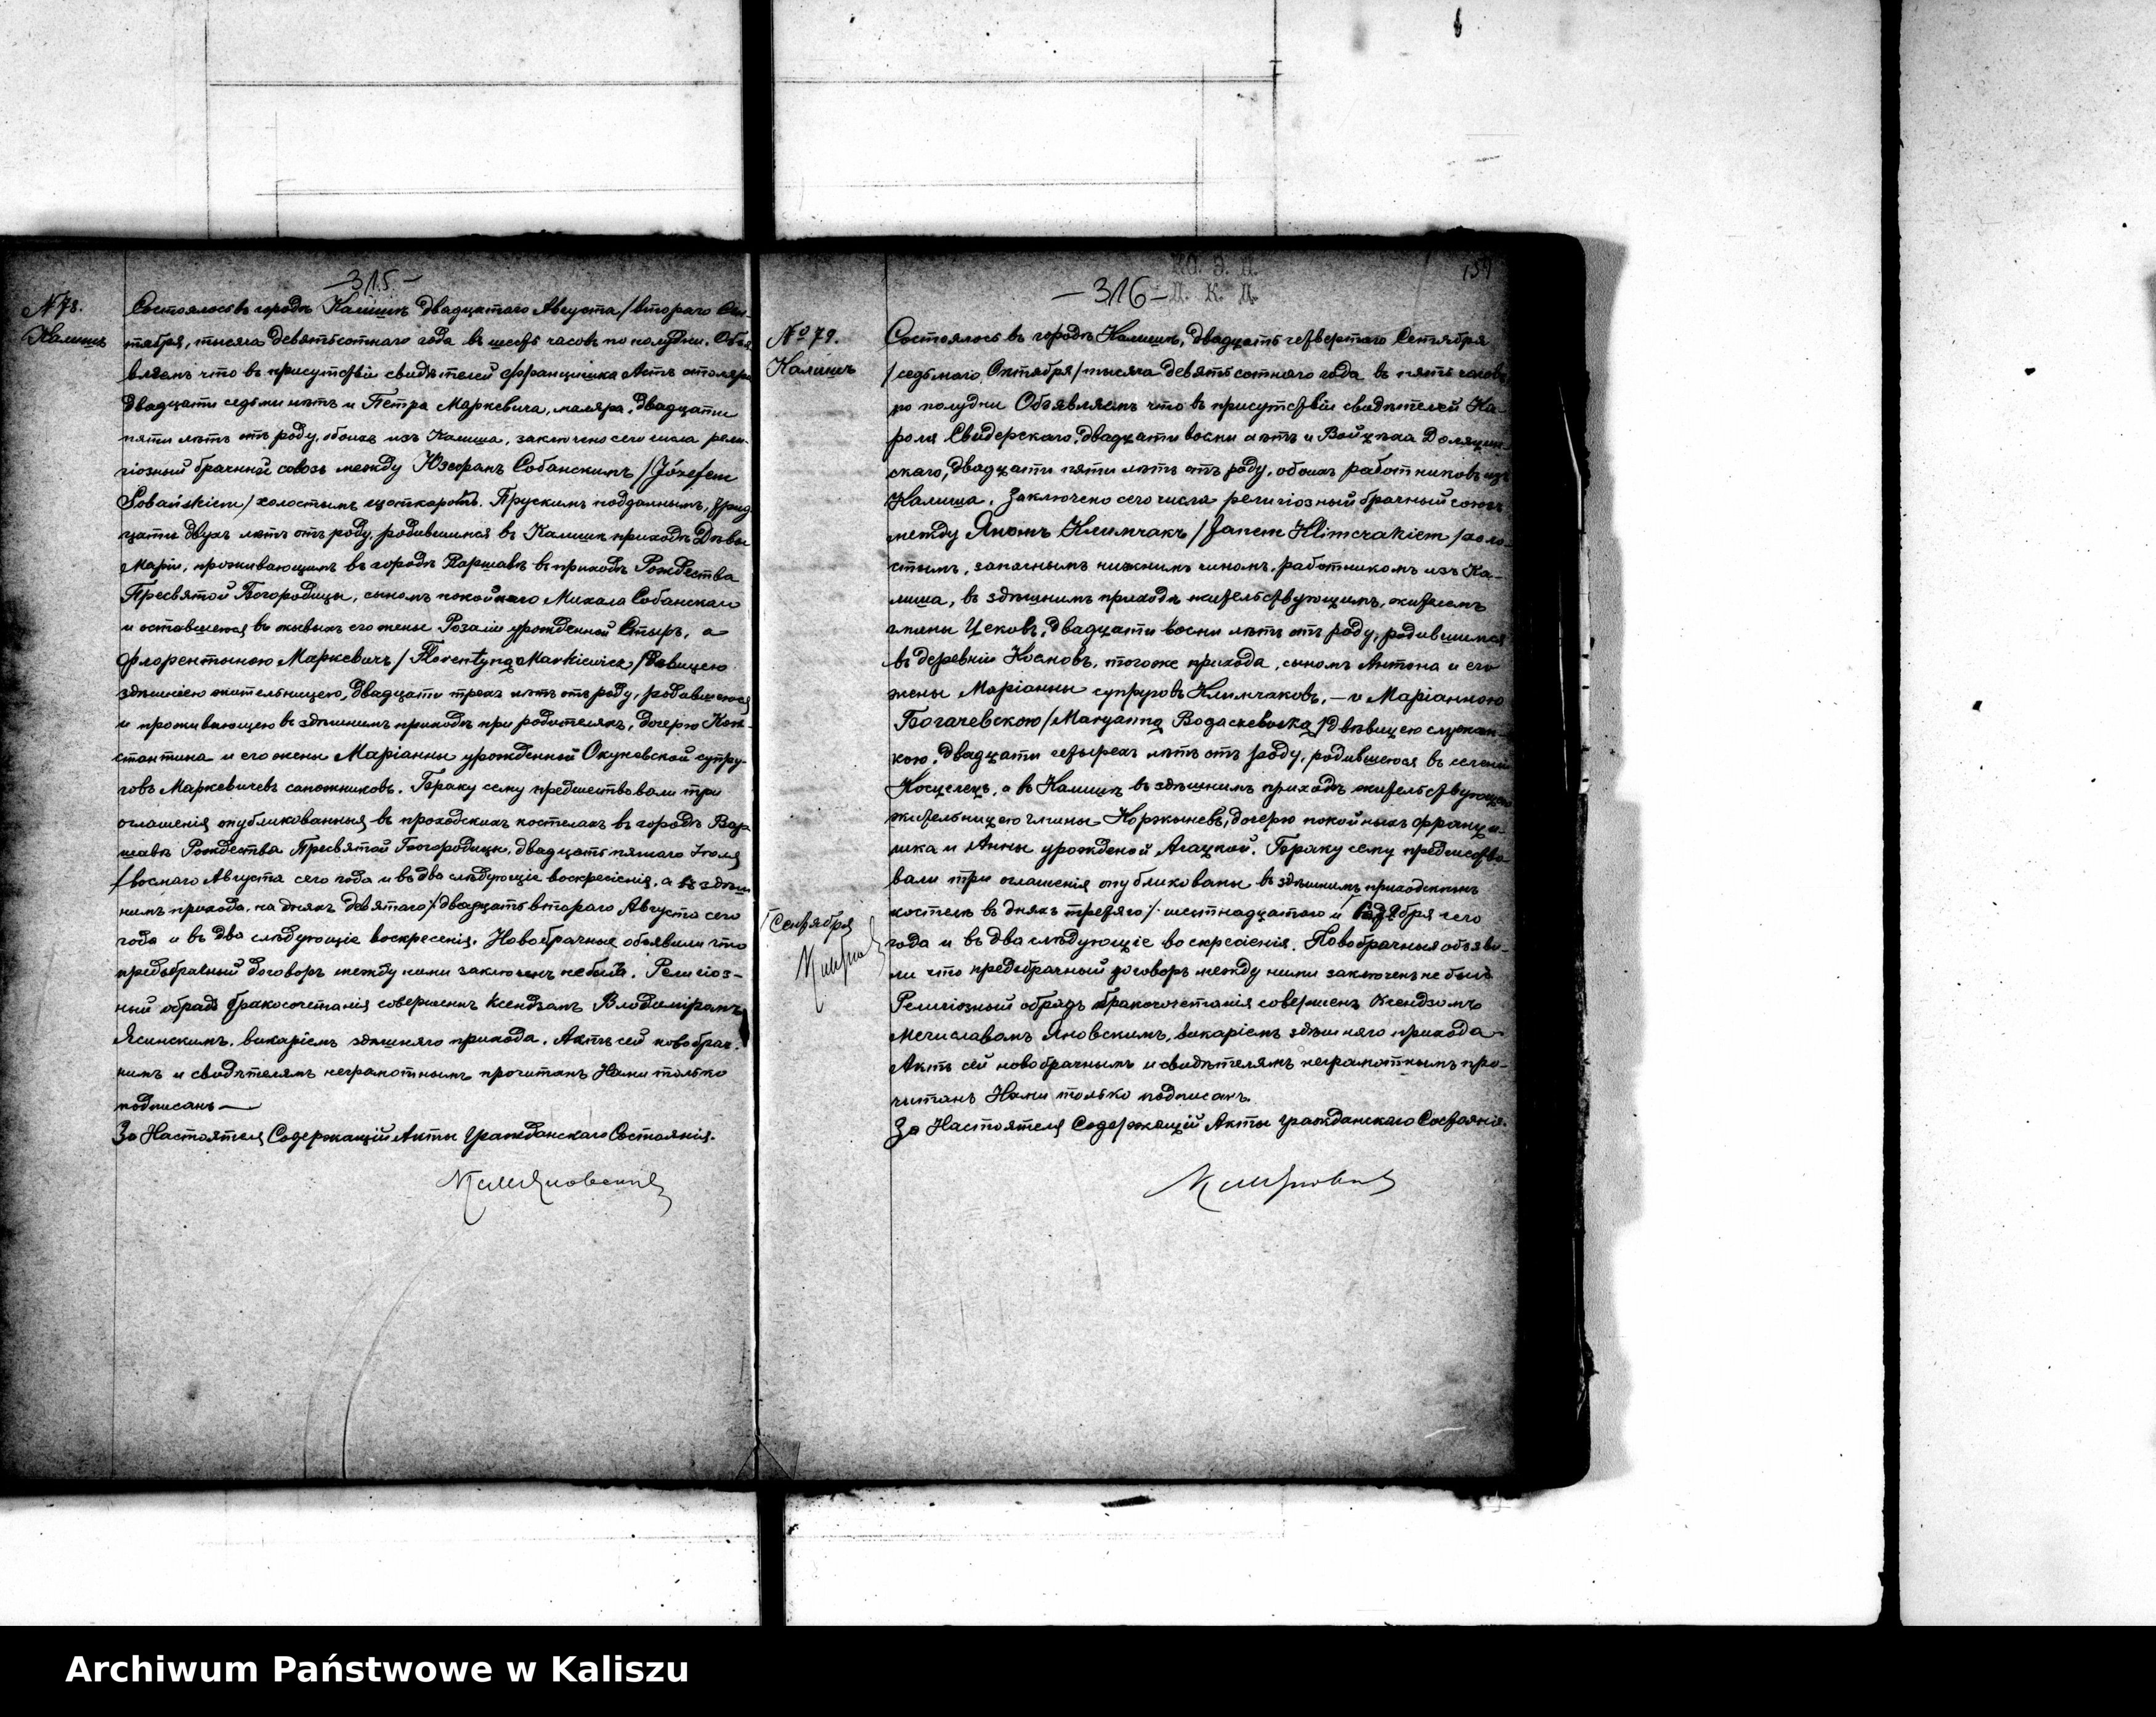 — 315 —
№ 78.
Калишъ
Состоялось въ городѣ Калишѣ двадцатаго Августа / втораго Сен-
тября, тысяча девятьсотнаго года въ шесть часовъ по полудни. Объя
вляемъ что въ присутствіи свидѣтелей Францишка Астъ столяра
двадцати седьми лѣтъ и Петра Маркевича, маляра, двадцати
пяти лѣтъ отъ роду, обоихъ изъ Калиша, заключено сего числа рели-
гіозный брачный союзъ между Юзефомъ Собанскимъ / Józefem
Sobańskiem / холостымъ щоткаромъ. Прускимъ подданнымъ, трид
цати двухъ лѣтъ отъ роду, родившимся въ Калишѣ приходѣ Дѣвы
Маріи, проживающимъ въ городѣ Варшавѣ въ приходѣ Рождества
Пресвятой Богородицы, сыномъ покойнаго Михала Собанскаго
и оставшеюся въ живыхъ его жены Розаліи урожденной Стыръ, а
Флорентыною Маркевичъ / Florentyną Markiewicz / дѣвицею
здѣшнею жительницею, двадцати трехъ лѣтъ отъ роду, родившеюся
и проживающею въ здѣшнимъ приходѣ при родителяхъ, дочерю Кон-
стантина и его жены Маріанны урожденной Окуневской супру-
говъ Маркевичевъ сапожниковъ. Браку сему предшествовали три
оглашенія опубликованныя въ проходскихъ костелахъ въ городѣ Вар
шавѣ Рождества Пресвятой Богородицы, двадцать пятаго Іюля
/ восмаго Августа сего года и въ два слѣдующіе воскресенія, а въ здѣш
нимъ прихода, на дняхъ девятаго / двадцать втораго Августа сего
года и въ два слѣдующіе воскресенія. Новобрачные объявили что
предбрачный договоръ между ними заключенъ небылъ. Религіоз-
ный обрядъ бракосочетанія совершенъ Ксендзамъ Владиміромъ
Ясинскимъ, викаріемъ здѣшняго прихода. Актъ сей новобрач-
нымъ и свидѣтелямъ неграмотнымъ прочитанъ Нами только
подписанъ —
За Настоятеля Содержащій Акты Гражданскаго Состоянія.
— 316 —
159
№ 79.
Калишъ
Состоялось въ городѣ Калишѣ, двадцать четвертаго Сентября
/ седьмаго Октября / тысяча девятьсотнаго года въ пять часовъ
по полудни Объявляемъ что въ присутствіи свидѣтелей Ка-
роля Свидерскаго, двадцати восми лѣтъ и Войцѣха
скаго, двадцати пяти лѣтъ отъ роду, обоихъ работниковъ изъ
Калиша, Заключено сего числа религіозный брачный союзъ
между Яномъ Климчакъ / Janem Klimczakiem / холо-
стымъ, запаснымъ нижнимъ чиномъ, работникомъ изъ Ка-
лиша, въ здѣшнимъ приходѣ жительствующимъ, жителемъ
гмины Цековъ, двадцати восми лѣтъ отъ роду, родившимся
въ деревніи Косновъ, тогоже прихода, сыномъ Антона и его
жены Маріанны супруговъ Климчаковъ, — и Маріанною
Богачевскою / Maryanną / дѣвицею служан-
кою, двадцати четырехъ лѣтъ отъ роду, родившеюся въ селеніи
Косцелецъ, а въ Калишѣ въ здѣшнимъ приходѣ жительствующею
жительницею гмины дочерю покойныхъ Францы-
шка и Анны урожденой Агацкой. Браку сему предшество-
вали три оглашенія опубликованы въ здѣшнимъ приходскимъ
костелѣ въ дняхъ третяго / шестнадцатаго и сего
/ Сентября
года и въ два слѣдующіе воскресенія. Новобрачныя объяви-
ли что предбрачный договоръ между ними заключенъ не былъ
Религіозный обрядъ бракосочетанія совершенъ Ксендзомъ
Мечиславомъ Яновскимъ, викаріемъ здѣшняго прихода
Актъ сей новобрачнымъ и свидѣтелямъ неграмотнымъ про-
читанъ Нами только подписанъ.
За Настоятеля Содержащій Акты Гражданскаго Состоянія.
Archiwum Państwowe w Kaliszu